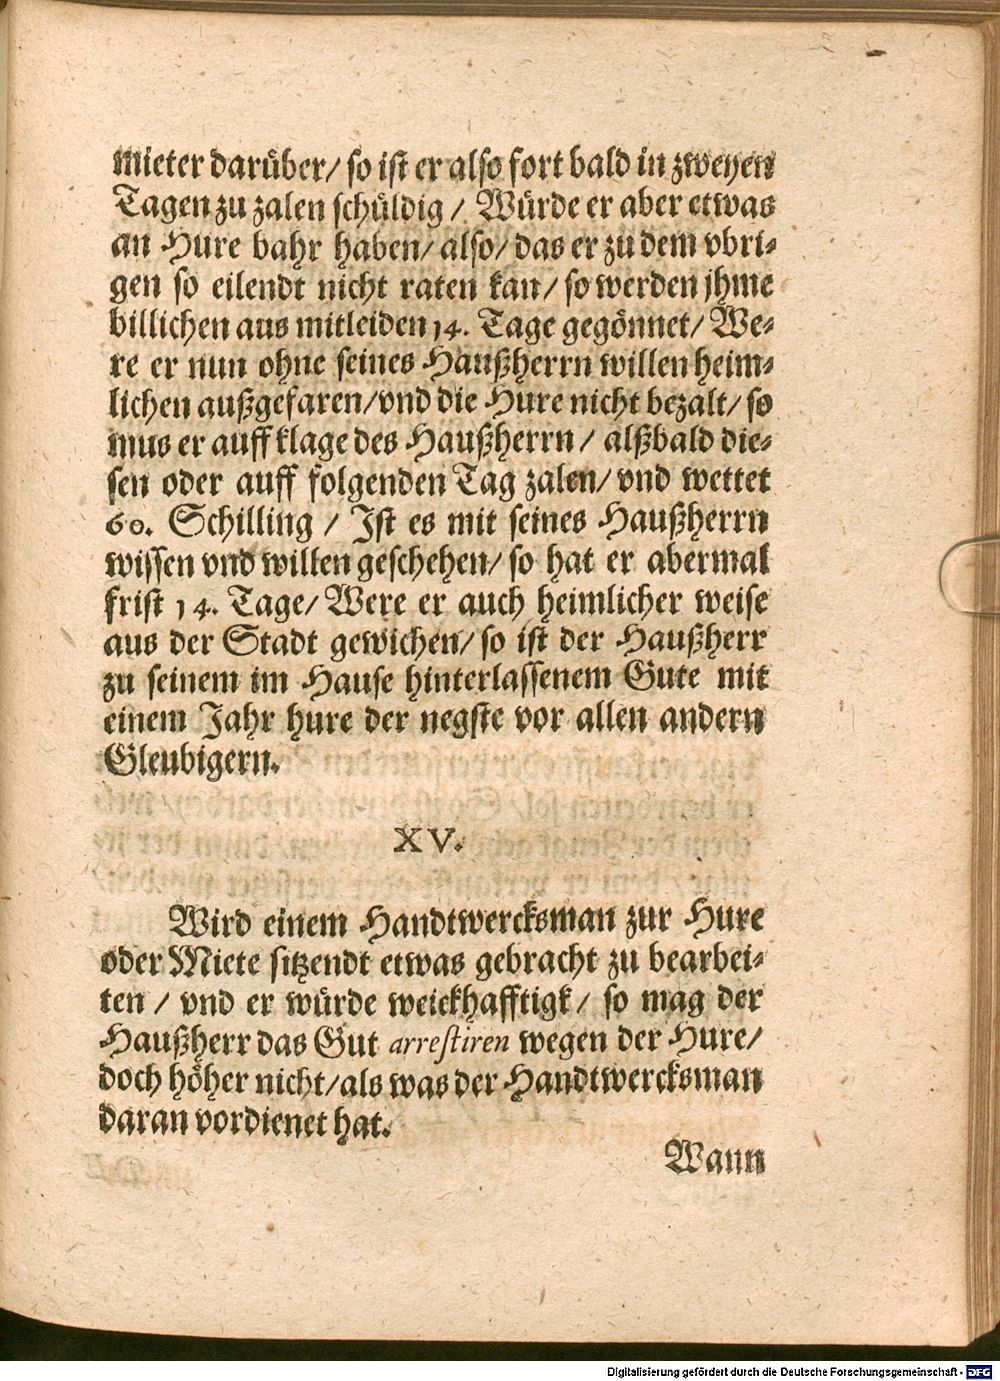 mieter darüber/ so ist er also fort bald in zweyen
Tagen zu zalen schüldig / Würde er aber etwas
an Hure bahr haben/ also/ das er zu dem vbri-
gen so eilendt nicht raten kan/ so werden jhme
billichen aus mitleiden 14. Tage gegönnet/ We-
re er nun ohne seines Haußherrn willen heim-
lichen außgefaren/vnd die Hure nicht bezalt/ so
mus er auff klage des Haußherrn / alßbald die-
sen oder auff folgenden Tag zalen/ vnd wettet
60. Schilling / Ist es mit seines Haußherrn
wissen vnd willen geschehen/ so hat er abermal
frist 14. Tage/ Were er auch heimlicher weise
aus der Stadt gewichen/ so ist der Haußherr
zu seinem im Hause hinterlassenem Gute mit
einem Jahr hure der negste vor allen andern
Gleubigern.
XV.
Wird einem Handtwercksman zur Hure
oder Miete sitzendt etwas gebracht zu bearbei-
ten / vnd er würde weickhafftigk/ so mag der
Haußherr das Gut arrestiren wegen der Hure/
doch höher nicht/als was der Handtwercksman
daran vordienet hat.
Wann
Digitalisierung gefördert durch die Deutsche Forschungsgemeinschaft - DFG